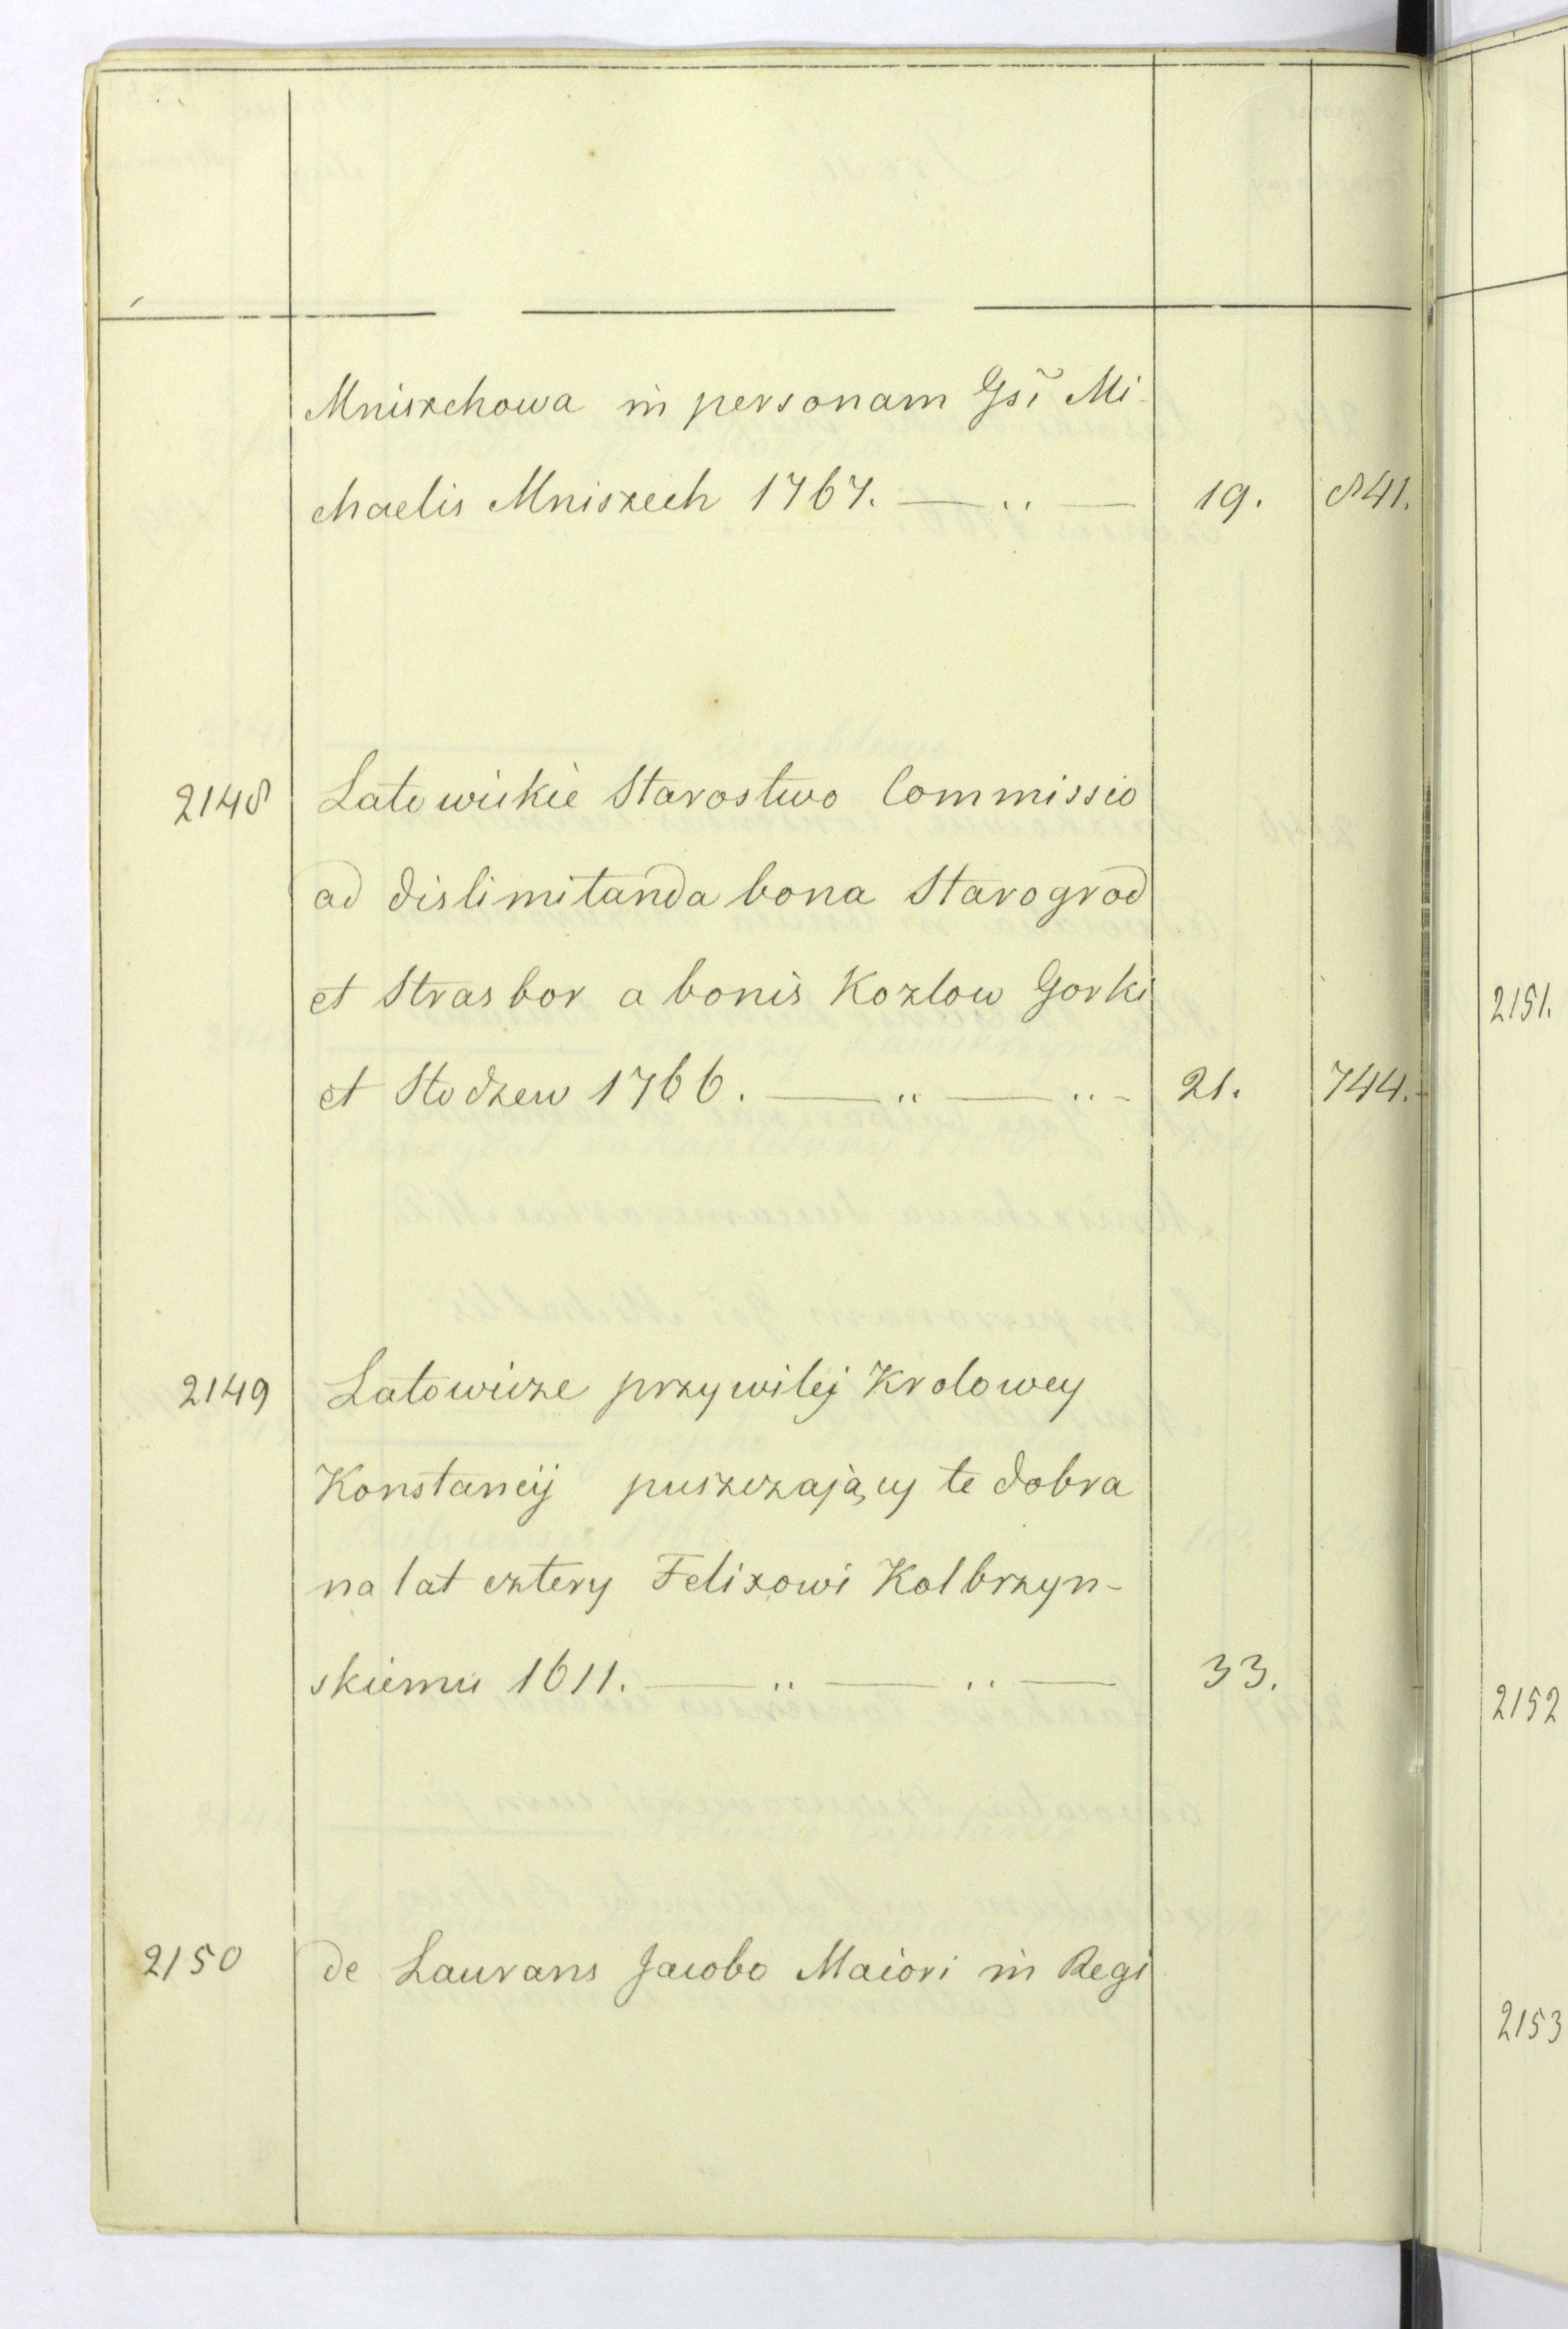 Mniszchowa in personam Gsi Mi-
chaelis Mniszech 1767. 19. 841.
2148 Latowickie Starostwo Commissio
ad dislimitanda bona Starogrod
et Strasbor a bonis Kozlow Gorki
et Stodzew 1766. 21. 744.
2149 Latowicze przywilej Krolowey
Konstancij puszczający te dobra
na lat cztery Felixowi Kolbrzyn-
skiemu 1611. 33.
2150 de Laurans Jacobo Maiori in Regi
2151.
2152
2153